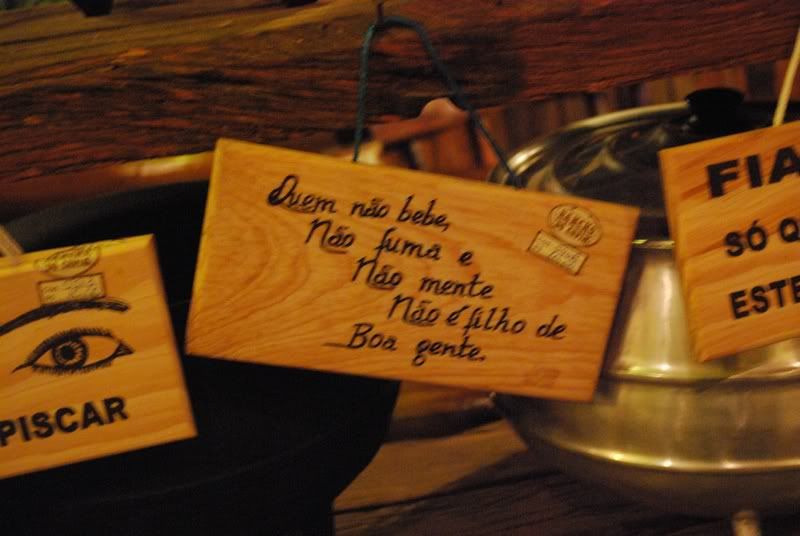 Quem não bebe,
Não fuma e
Não mente
Não é filho de
Boa gente.
PISCAR
FIA
SÓ Q
ESTE